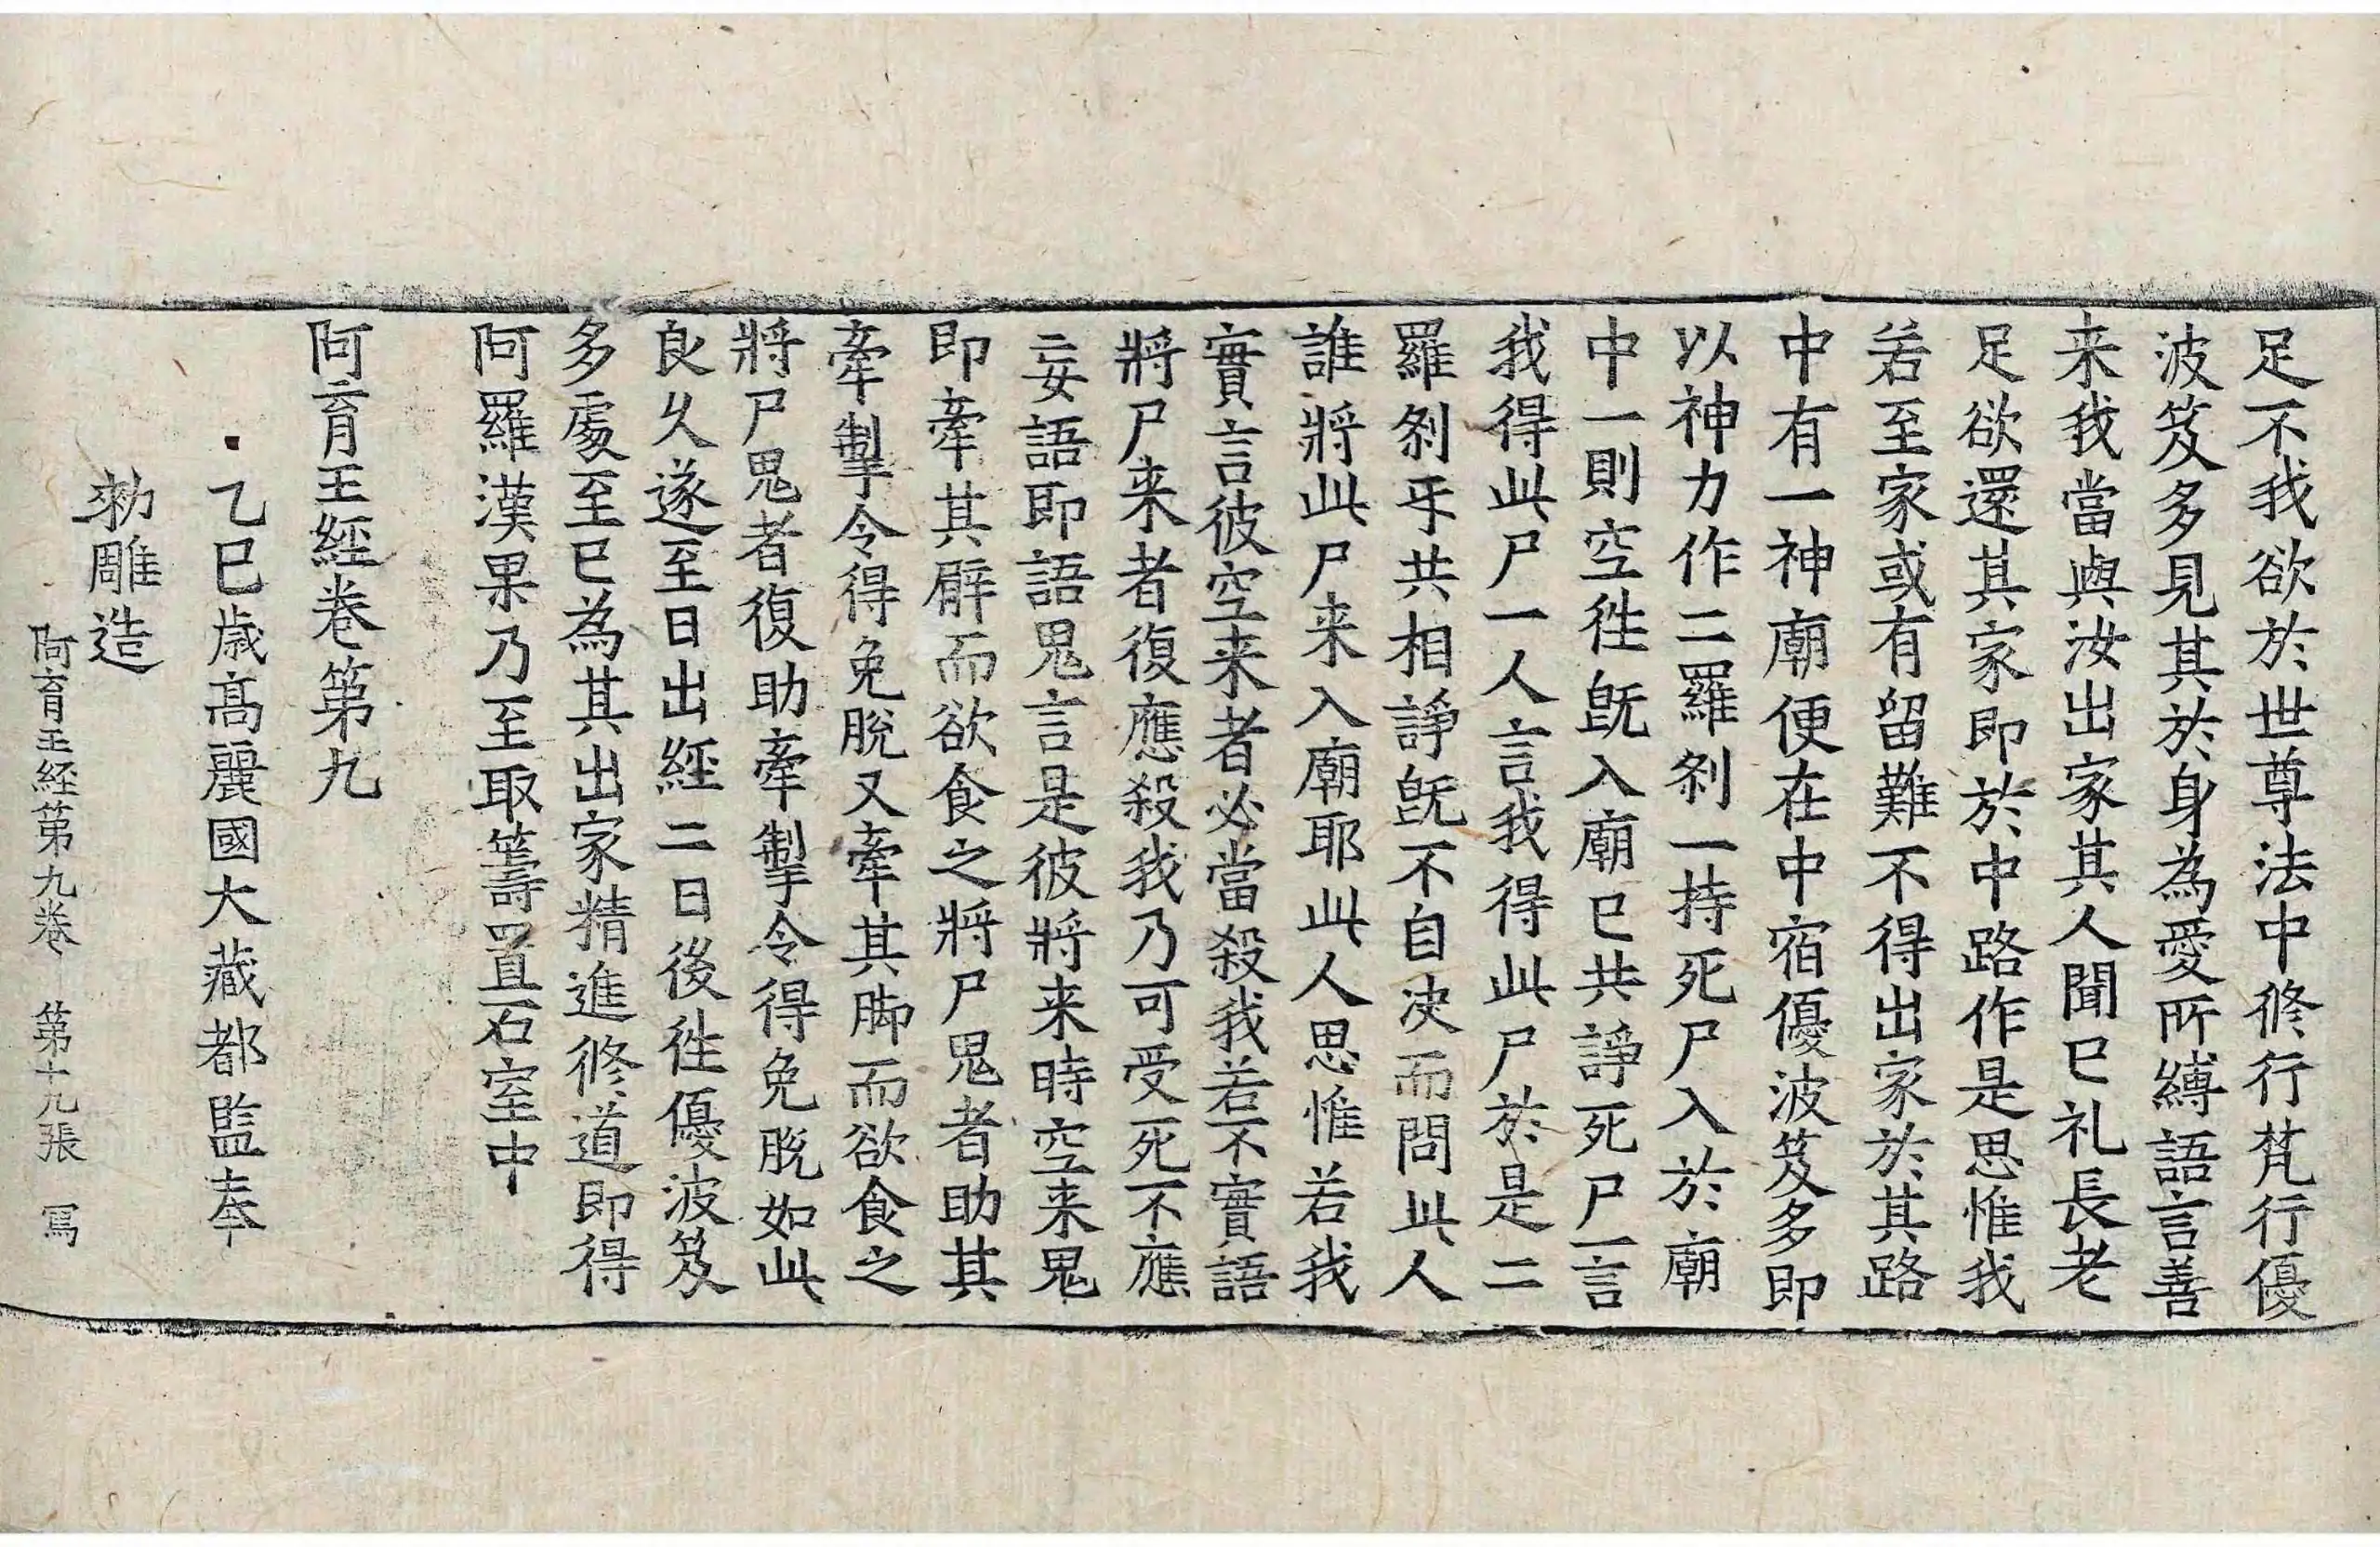 足不我欲於世尊法中修行梵行優
波笈多見其於身為愛所縛語言善
来我當與汝出家其人聞已礼長老
足欲還其家即於中路作是思惟我
若至家或有留難不得出家於其路
中有一神廟便在中宿優波笈多即
以神力作二羅刹一持死尸入於廟
中一則空徃旣入廟已共諍死尸一言
我得此尸一人言我得此尸於是二
羅刹乎共相諍旣不自决而問此人
誰將此尸来入廟耶此人思惟若我
實言彼空来者必當殺我若不實語
將尸来者復應殺我乃可受死不應
妄語即語鬼言是彼將来時空来鬼
即牽其臂而欲食之將尸鬼者助其
牽掣令得免脫又牽其脚而欲食之
將尸鬼者復助牽掣令得免脫如此
良久遂至日出經二日後徃優波笈
多處至已為其出家精進修道即得
阿羅漢果乃至取籌置石室中
阿育王經卷第九
乙巳歳髙麗國大藏都監奉
勑雕造
阿育王経第九卷 第十九張 冩